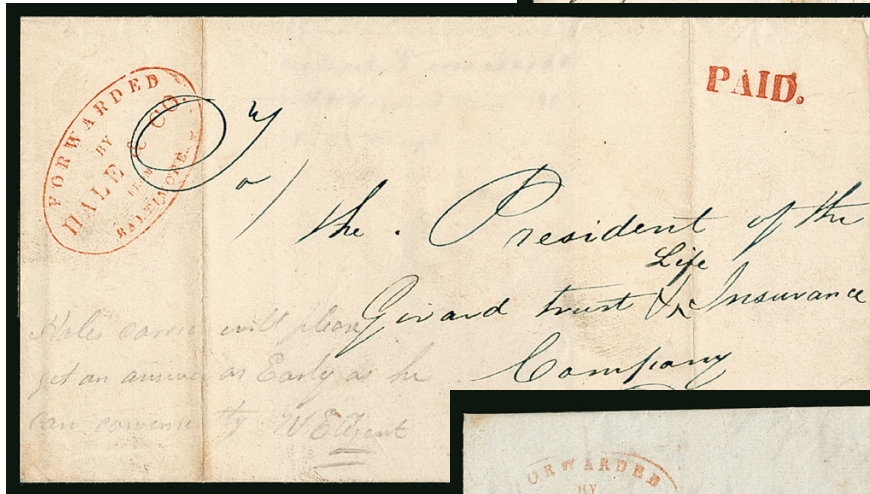 FORWARDED
BY
HALE & CO.
FROM
BALTIMORE.
PAID.
To/
the. President of the
Life
Girard trust & Insurance
Company
Hales carrie will please
get an answer as Early as he
can conveniently
FORWARDED
BY